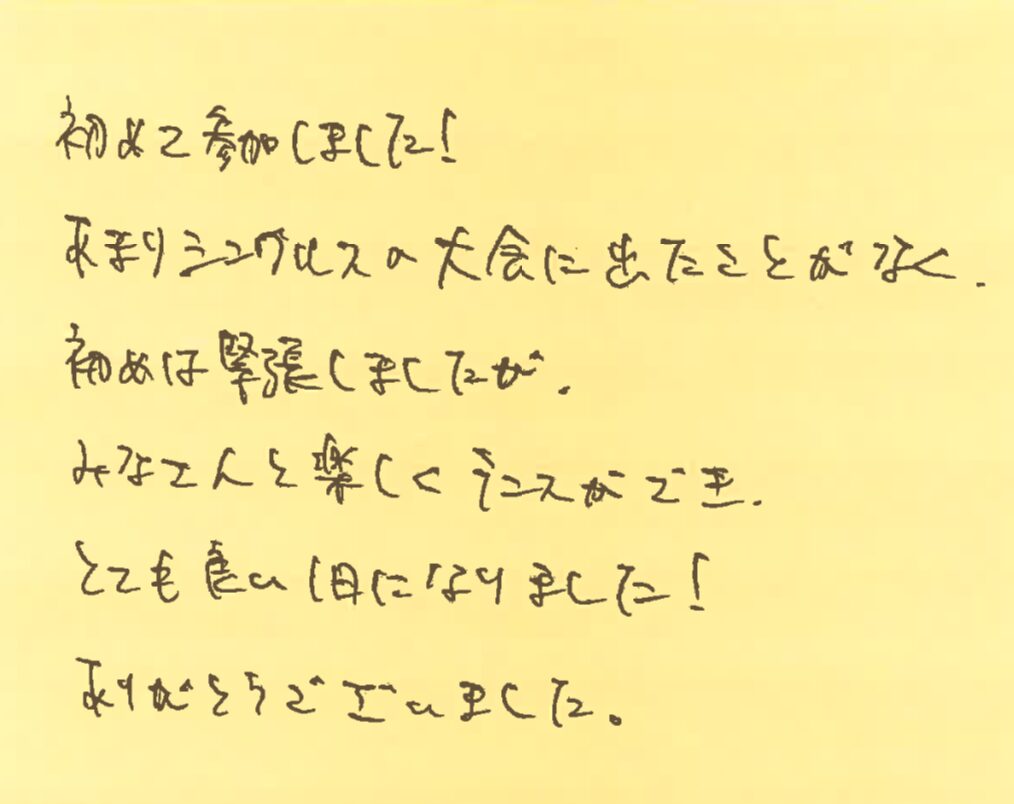 初めて参加しました!
あまりシングルスの大会に出たことがなく、
初めは緊張しましたが、
みなさんと楽しくテニスができ、
とても良い1日になりました!
ありがとうございました。